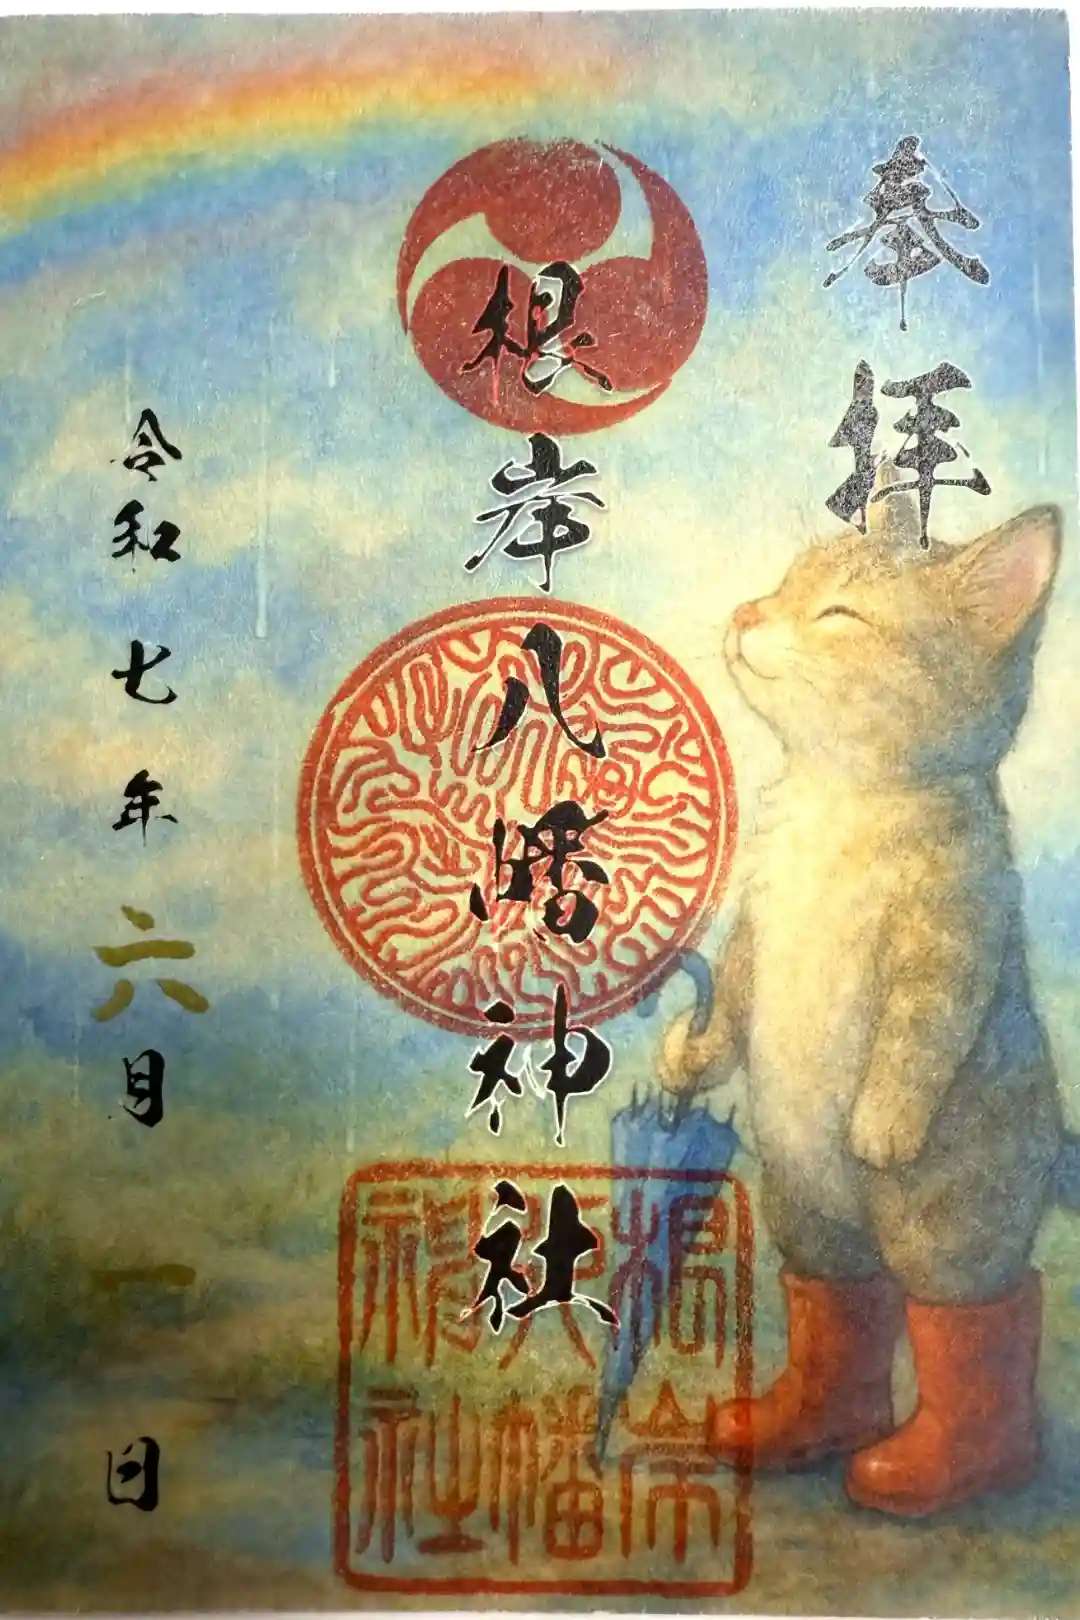 奉拝
根岸八幡神社
令和七年六月一日
根岸八幡神社